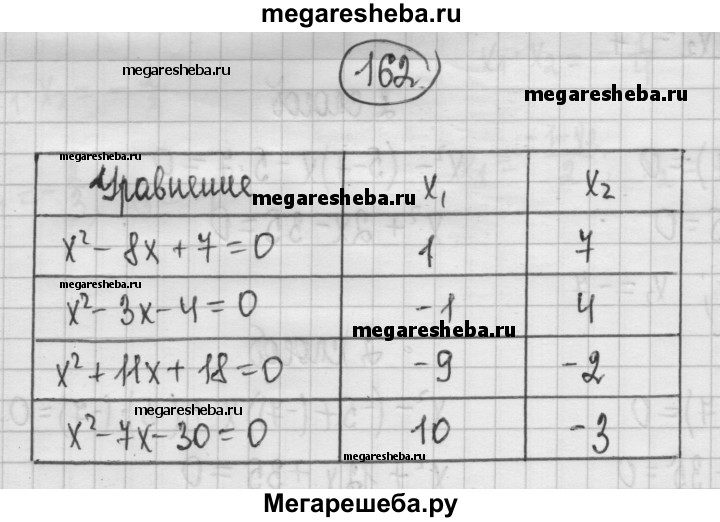 megaresheba.ru
162
megaresheba.ru
megaresheba.ru
megaresheba.ru
Уравнение megaresheba.ru x₁ x₂
x² - 8x + 7 = 0 1 7
x² - 3x - 4 = 0 -1 4
megaresheba.ru
x² + 11x + 18 = 0 -9 -2
megaresheba.ru
x² - 7x - 30 = 0 10 -3
megaresheba.ru
Мегарешеба.ру